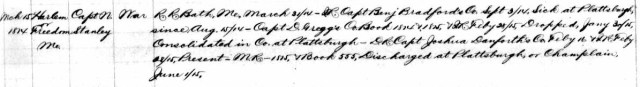 Mch 15 Harlem Capt N. War R R Bath, Me, March 31/14 - Capt Benj Bradford's Co. Sept 3/14, Sick at Plattsburg,
1814 Freedom Stanley since Aug. 15/14 - Capt D. Gregg's Co Book 1814 & 1815, Feby 28/15 Dropped, Jany 20/15,
Me. Consolidated in Co. at Plattsburgh - D R Capt Joshua Danforth's Co. Feby 16 & I R Feby
28/15, Present - M R - 1815, Book 555, Discharged at Plattsburgh, or Champlain,
June 1/15.